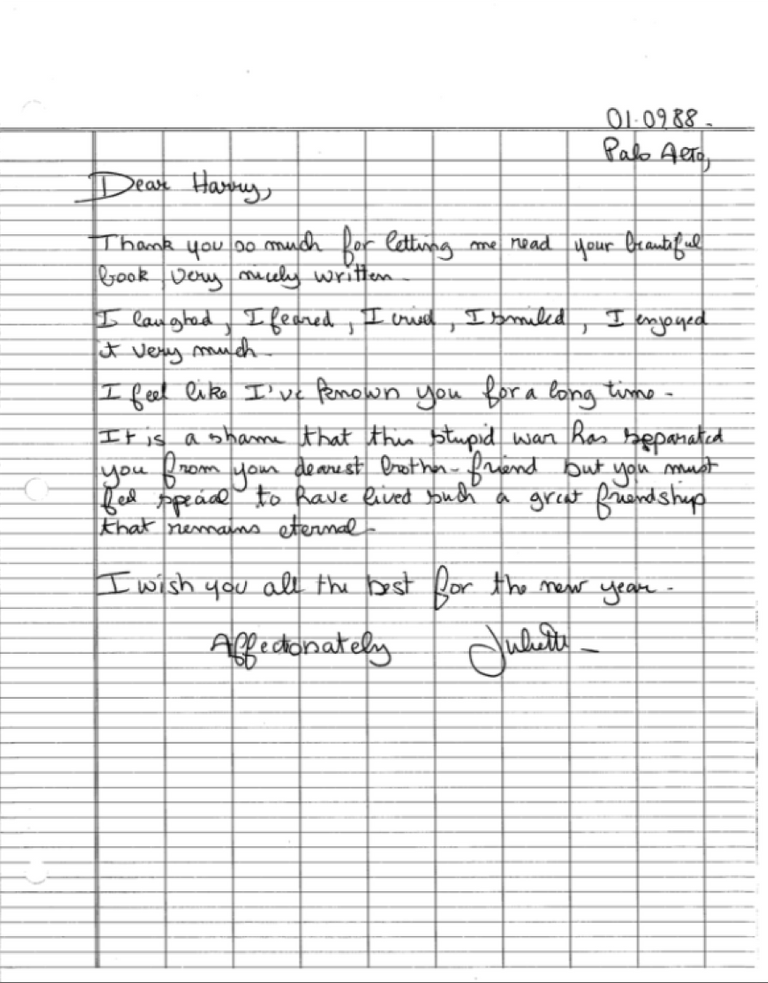 01.0988.
Palo Alto,
Dear Harry,
Thank you so much for letting me read your beautiful
book very nicely written.
I laughed, I feared, I cried, I smiled, I enjoyed
it very much.
I feel like I've known you for a long time.
It is a shame that this stupid war has separated
you from your dearest brother-friend but you must
feel special to have lived such a great friendship
that remains eternal.
I wish you all the best for the new year.
Affectionately Juliette